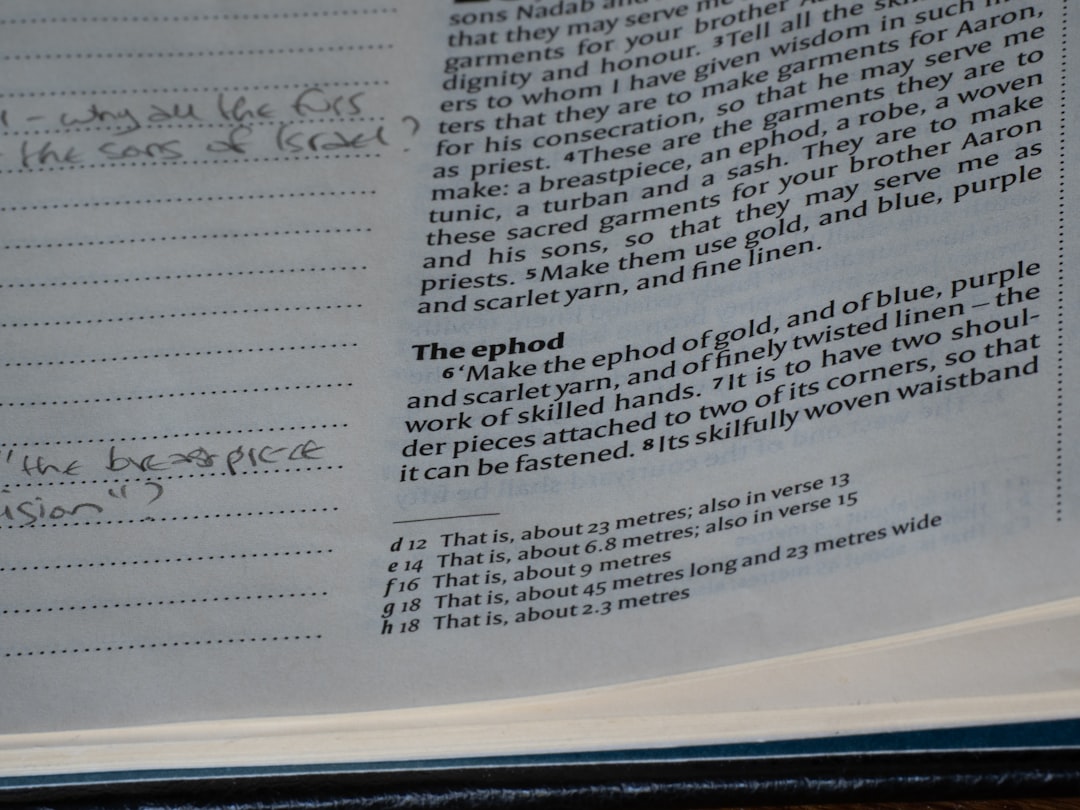 – why all the furs
the sons of Israel?
"the breastpiece
ision"?
sons Nadab and
that they may serve me
garments for your brother
dignity and honour. 3Tell all the
ers to whom I have given wisdom in such
ters that they are to make garments for Aaron,
for his consecration, so that he may serve me
as priest. 4These are the garments they are to
make: a breastpiece, an ephod, a robe, a woven
tunic, a turban and a sash. They are to make
these sacred garments for your brother Aaron
and his sons, so that they may serve me as
priests. 5Make them use gold, and blue, purple
and scarlet yarn, and fine linen.
The ephod
6‘Make the ephod of gold, and of blue, purple
and scarlet yarn, and of finely twisted linen – the
work of skilled hands. 7It is to have two shoul-
der pieces attached to two of its corners, so that
it can be fastened. 8Its skilfully woven waistband
d 12 That is, about 23 metres; also in verse 13
e 14 That is, about 6.8 metres; also in verse 15
f 16 That is, about 9 metres
g 18 That is, about 45 metres long and 23 metres wide
h 18 That is, about 2.3 metres